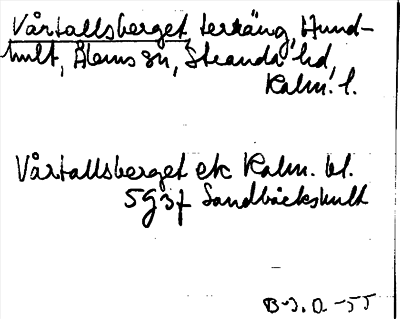 Vårtallsberget, terräng, Hund-
hult, Ålems sn, Stranda hd,
Kalm. l.
Vårtallsberget ek Kalm. bl.
5G3f Sandbäckshult
B-J. O. -55